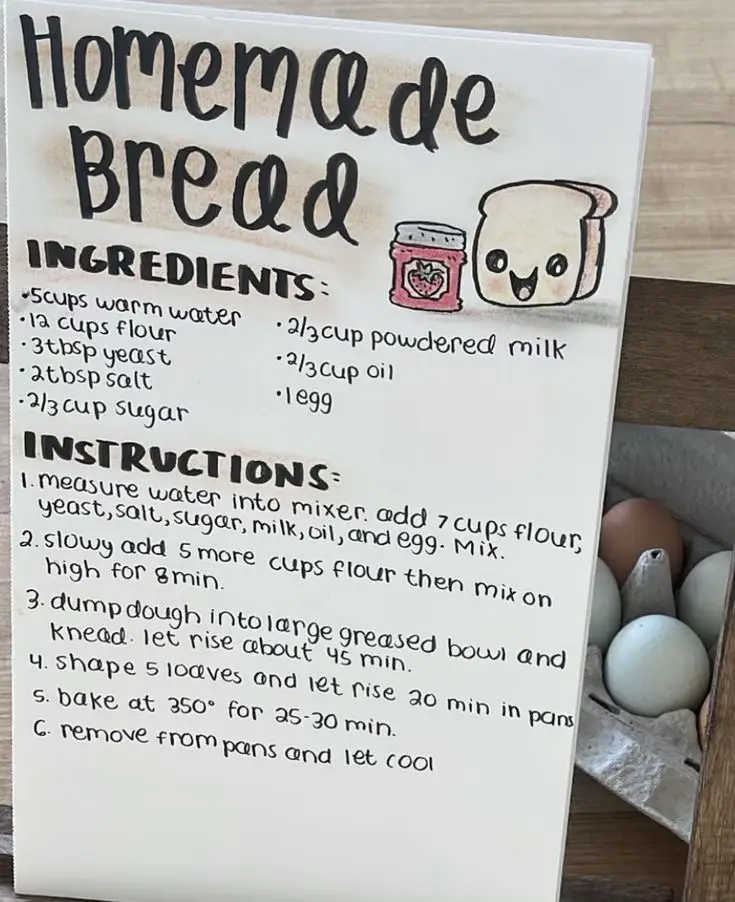 Homemade
Bread
INGREDIENTS:
•5cups warm water
•12 cups flour
•3tbsp yeast
•2tbsp salt
•2/3 cup sugar
•2/3 cup powdered milk
•2/3 cup oil
•1 egg
INSTRUCTIONS:
1. measure water into mixer. add 7 cups flour,
yeast, salt, sugar, milk, oil, and egg. Mix.
2. slowy add 5 more cups flour then mix on
high for 8 min.
3. dump dough into large greased bowl and
knead. let rise about 45 min.
4. shape 5 loaves and let rise 20 min in pans
5. bake at 350° for 25-30 min.
6. remove from pans and let cool